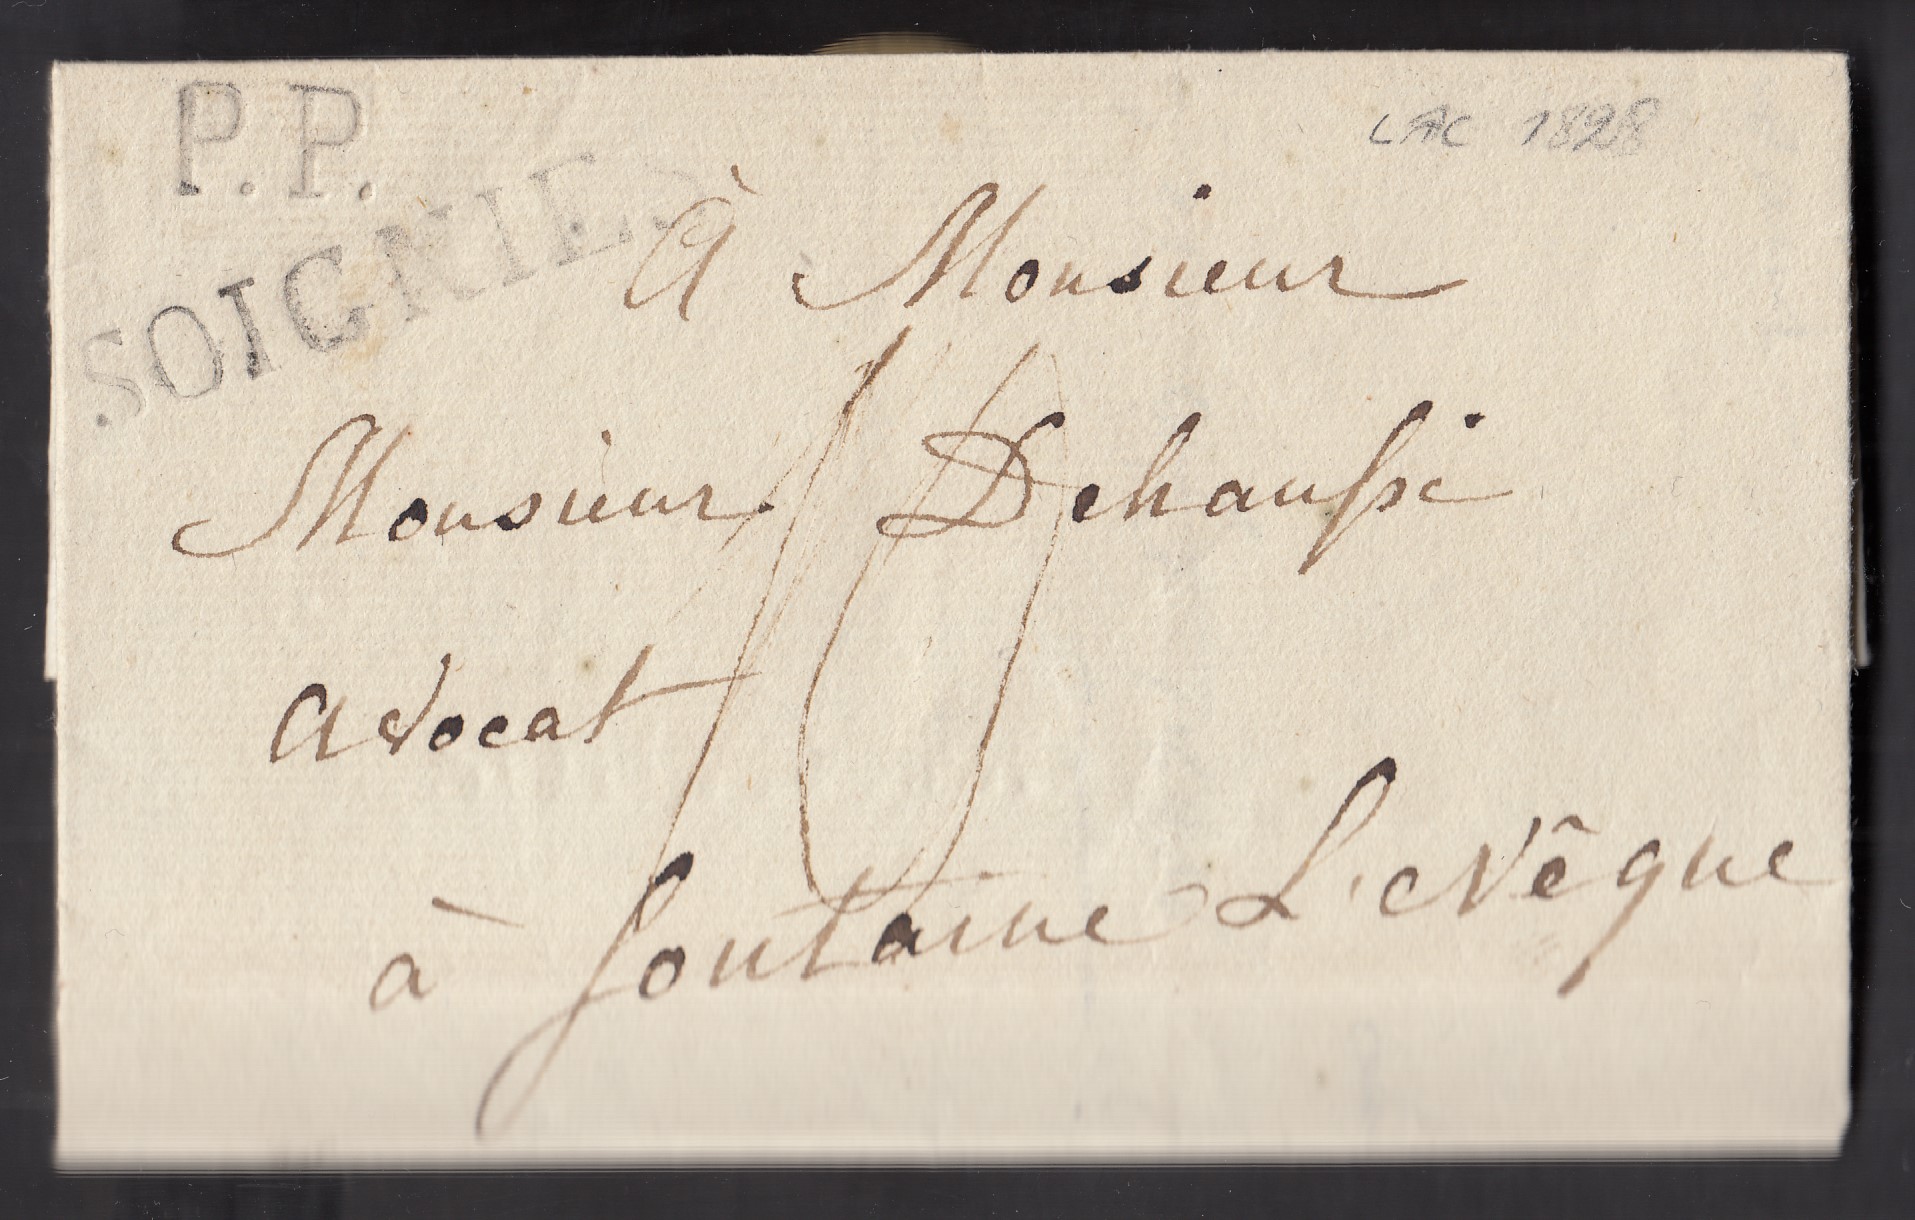 P.P.
SOIGNIES
LAC 1828
à Monsieur
Monsieur Dehaussi
10
avocat
à fontaine L'evêque